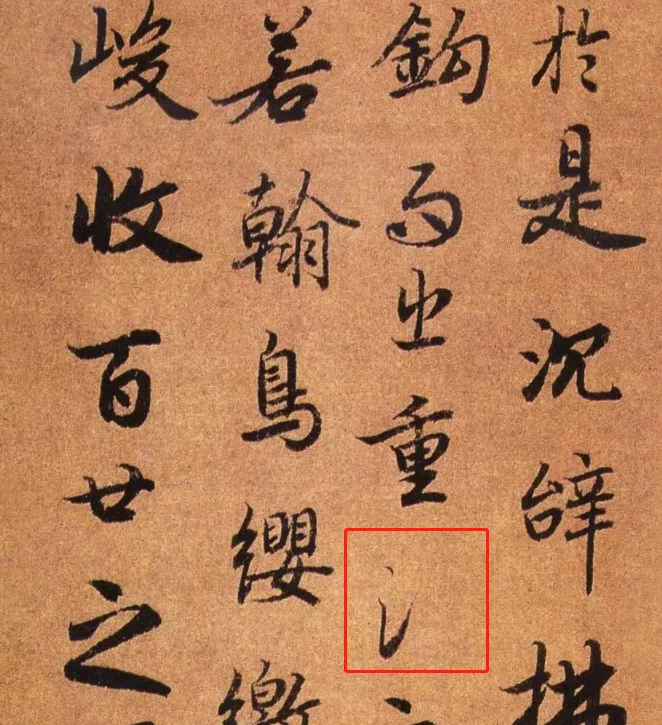 於是沉辭
鈎而出重氵
若翰鳥纓繳
峻收百廿之